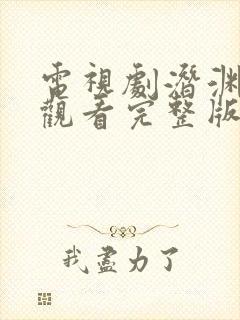 電視劇潛淵
觀看完整版
我盡力了